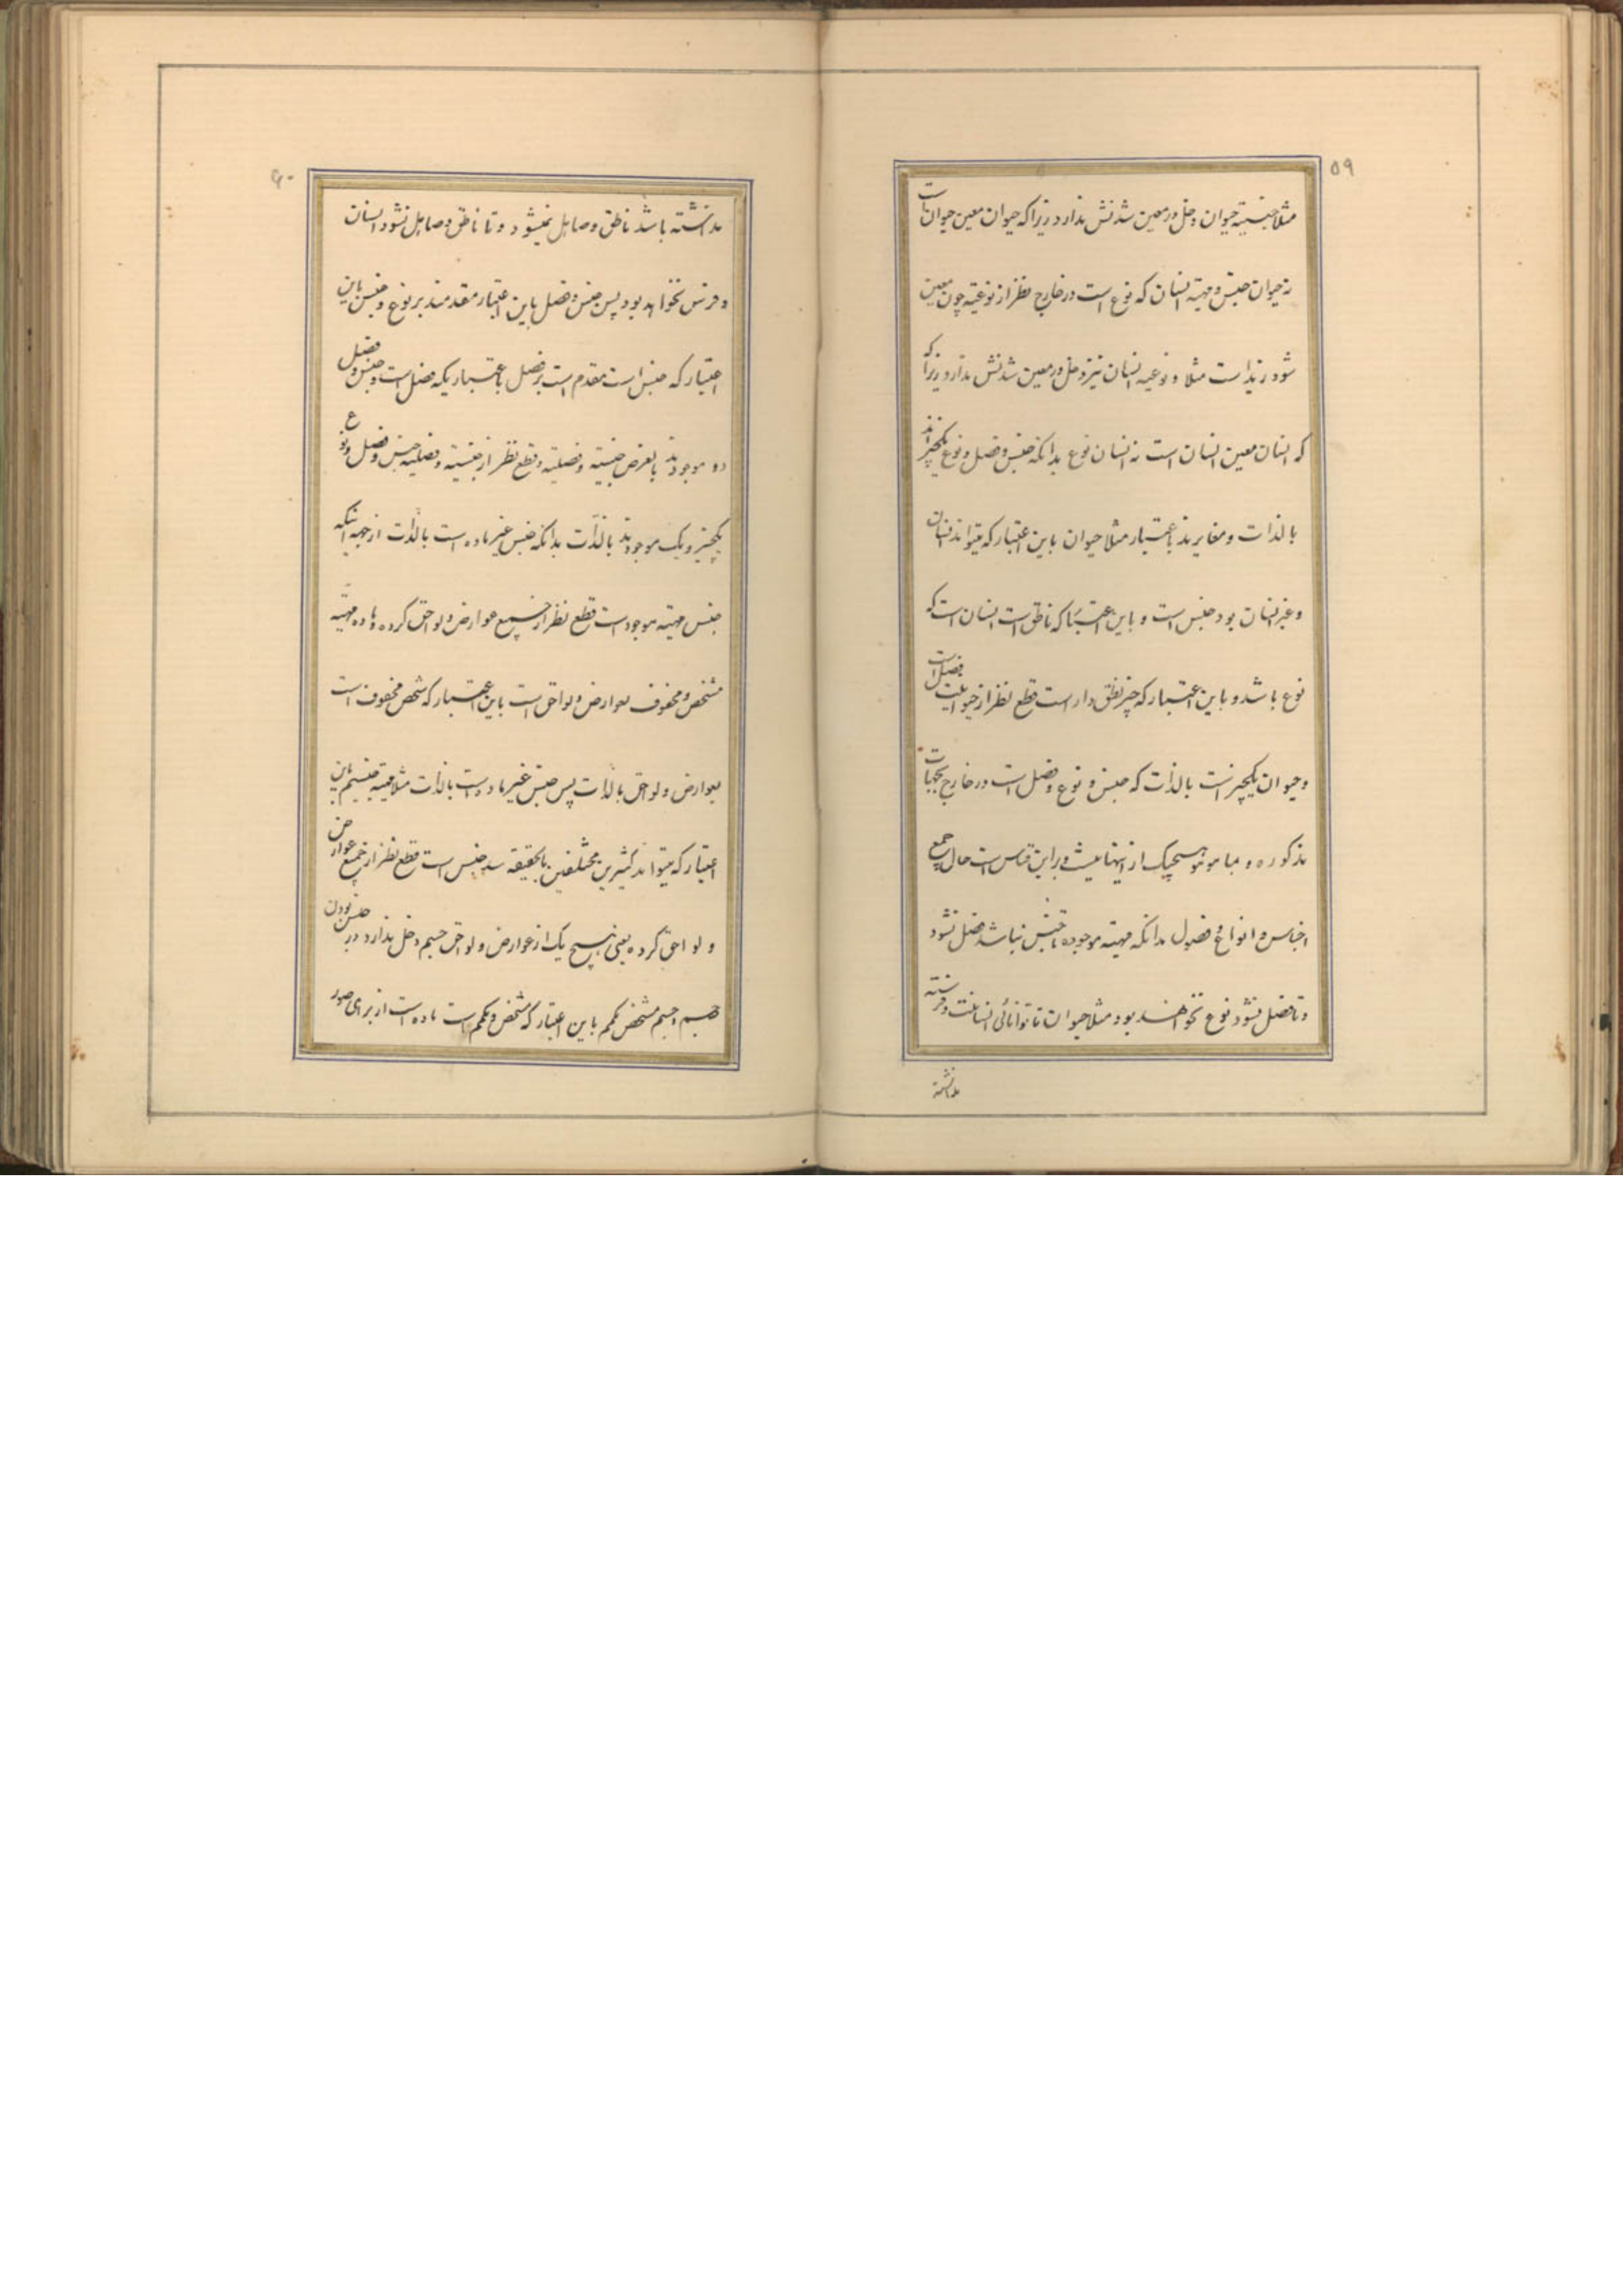 ۵۹
مثلا جنسیته حیوان دخل در معین شدنش ندارد زیرا که حیوان معین حیوان است
نه حیوان جنس و مهیته انسان که نوع است در خارج نظر از نوعیته چون معین
شود زید است مثلا و نوعیه انسان نیز دخل در معین شدنش ندارد زیرا که
که انسان معین انسان است نه انسان نوع بدانکه جنس و فصل و نوع یکچیزاند
بالذات و مغایرند باعتبار مثلا حیوان باین اعتبار که میتواند انسان
و غیر انسان بود جنس است و باین اعتبار که ناطق است انسان است که
نوع باشد و باین اعتبار که چیز نطق دار است قطع نظر از حیوانیت فصل است
و حیوان یکچیز است بالذات که جنس و نوع و فصل است در خارج بجهات
مذکوره و هیچیک از اینها نیست و براین قیاس است حال جمیع
اجناس و انواع و فصول بدانکه مهیته موجوده تا جنس نباشد فصل نشود
و تا فصل نشود نوع نخواهد بود مثلا حیوان تا توانائی انسانیت و فرسیته
نداشته
۶۰
نداشته باشد ناطق و صاهل نمیشود و تا ناطق و صاهل نشود انسان
و فرس نخواهد بود پس جنس و فصل باین اعتبار مقدمند بر نوع و جنس باین
اعتبار که جنس است مقدم است بر فصل باعتباریکه فصل است و جنس و فصل
دو موجودند بالعرض جنسیته و فصلیته و قطع نظر از جنسیته و فصلیته جنس و فصل و نوع
یکچیز و یک موجودند بالذات بدانکه جنس غیر ماده است بالذات از جهة اینکه
جنس مهیته موجود است قطع نظر از جمیع عوارض و لواحق کرده و ماده مهیته
مشخص و محفوف بعوارض و لواحق است باین اعتبار که مشخص و محفوف است
بعوارض و لواحق بالذات پس جنس غیر ماده است بالذات مثلا مهیته جسم باین
اعتبار که میتواند کثیرین مختلفین بالحقیقه شد جنس است قطع نظر از جمیع عوارض
و لواحق کرده یعنی هیچ یک از عوارض و لواحق جسم دخل ندارد در جنس بودن
جسم و جسم مشخص مکمم باین اعتبار که مشخص و مکمم است ماده است از برای صور